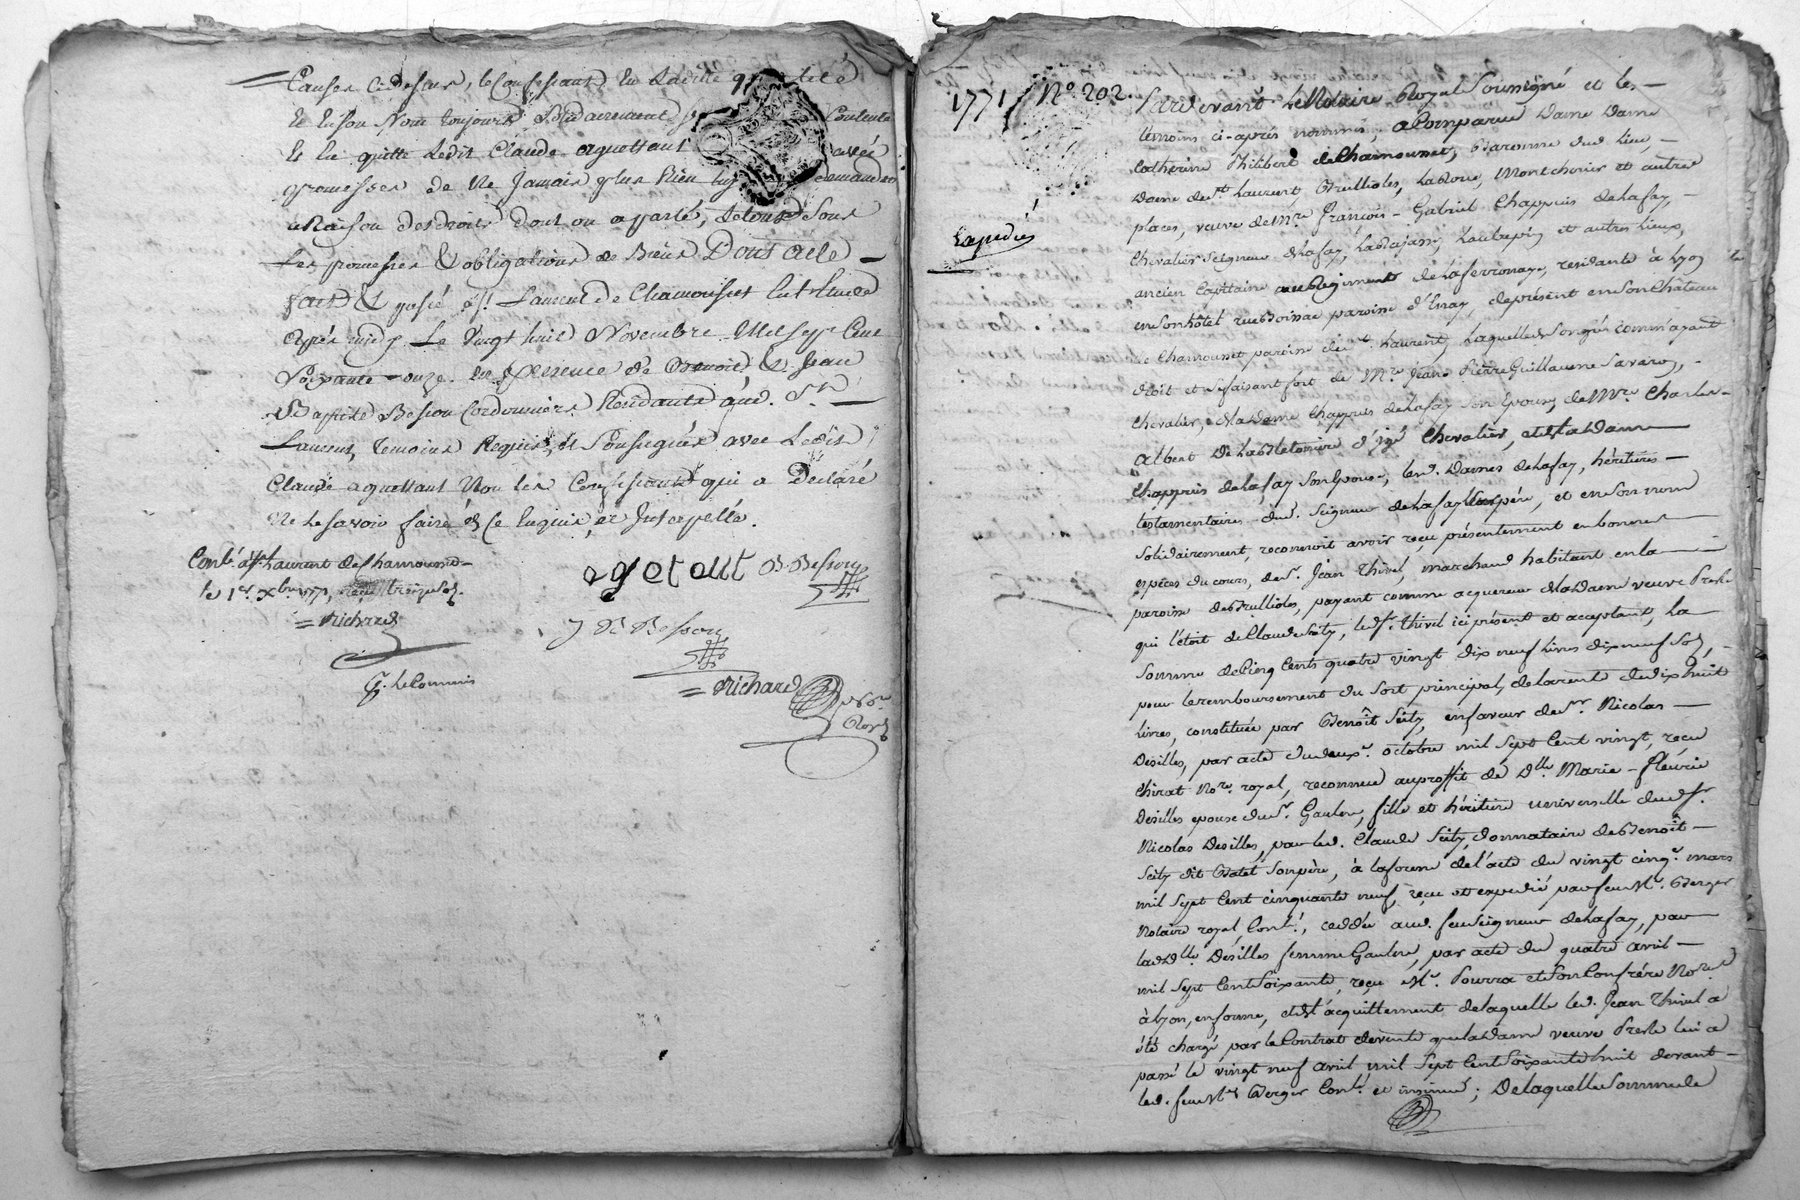 Causes Cidessus, le Confessant En Ladite qualité
Et En son Nom toujours Solidairement se Contente
Et En quitte Ledit Claude aguettant avec
promesses de Ne Jamais plus Rien luy demander
a Raison des droits dont on a parlé, Le tout Sous
Les promesses & obligations de Biens Dont acte
fait & passé a St. Laurent de Chamousset En l'Etude
après midy Le Vingt huit Novembre Mil sept Cent
Soixante-onze. En presence de Benoit & Jean
Baptiste Besson Cordonniers Residants aud. St.
Laurent, temoins Requis, & Soussignés avec Ledit
Claude aguettant Non les Confessants qui a Declaré
Ne le savoir faire de Ce Enquis, et Interpellé.
Conlé. à St. Laurent de Chamousset
le 1er. Xbre. 1771, reçu treize sols.
Richard
agetant B. Besson
J B Besson
G. le Commis
Richard
Nore.
Roy.
1771 No. 202.
Expédié
Pardevant Le Notaire Royal Soussigné et les
temoins ci-après nommés, a Comparu Dame Dame
Catherine Philibert de Chamousset, Baronne dud. lieu,
Dame de St. Laurent, Brullioles, La Roue, Montchenis et autres
places, veuve de Mre. François-Gabriel Chappuis de Lafay,
Chevalier Seigneur de Lafay, Laubepin et autres Lieux,
ancien Capitaine au Regiment de Laferronnaye, residante à Lyon
en son hôtel rue Boissac paroisse d'Enay, de présent en son Château
de Chamousset paroisse dud. St. Laurent, Laquelle de Son gré comm'ayant
droit et Se faisant fort de Mre. Jean Pierre Guillaume Savaron,
Chevalier, et La Dame Chappuis de Lafay Son Epouse, de Mre. Charles
Albert De La Bletonnière d'Igé Chevalier, et de La Dame
Chappuis de Lafay Son Epouse, lesd. Dames de Lafay, héritières
testamentaires dud. Seigneur de Lafay Leur père, et en Son nom
Solidairement, reconnoit avoir reçu présentement en bonnes
espèces du cours, de Sr. Jean Thivel, marchand habitant en la
paroisse de Brullioles, payant comme acquereur de La Dame veuve Presle
qui l'étoit de Claude Seity, led. Sr. Thivel ici présent et acceptant, La
Somme de Cinq Cents quatre vingt dix neuf livres dix neuf Sols,
pour le remboursement du Sort principal de la rente de dix huit
livres, constituée par Benoît Seity, en faveur de Sr. Nicolas
Desilles, par acte du deuxe. octobre mil Sept Cent vingt, reçu
Chirat Nore. royal, reconnue au proffit de Dlle. Marie-Fleurie
Desilles epouse du Sr. Gaulne, fille et héritière universelle dud. Sr.
Nicolas Desilles, par led. Claude Seity, donnataire de Benoît
Seity dit Batel Son père, à la forme de l'acte du vingt cinqe. mars
mil Sept Cent cinquante neuf, reçu et expedié par feu Me. Berger
Notaire royal, Conlé., cedée aud. feu Seigneur de Lafay, par
lad. Dlle. Desilles femme Gaulne, par acte du quatre avril
mil Sept Cent Soixante, reçu Me. Pourra et Son Confrère Nores.
à Lyon, en forme, et de l'acquittement de laquelle led. Jean Thivel a
été chargé par le Contrat de vente que la Dame veuve Presle lui a
passé le vingt neuf avril mil Sept Cent Soixante huit devant
led. feu Me. Berger Conlé. et insinué; De laquelle Somme de